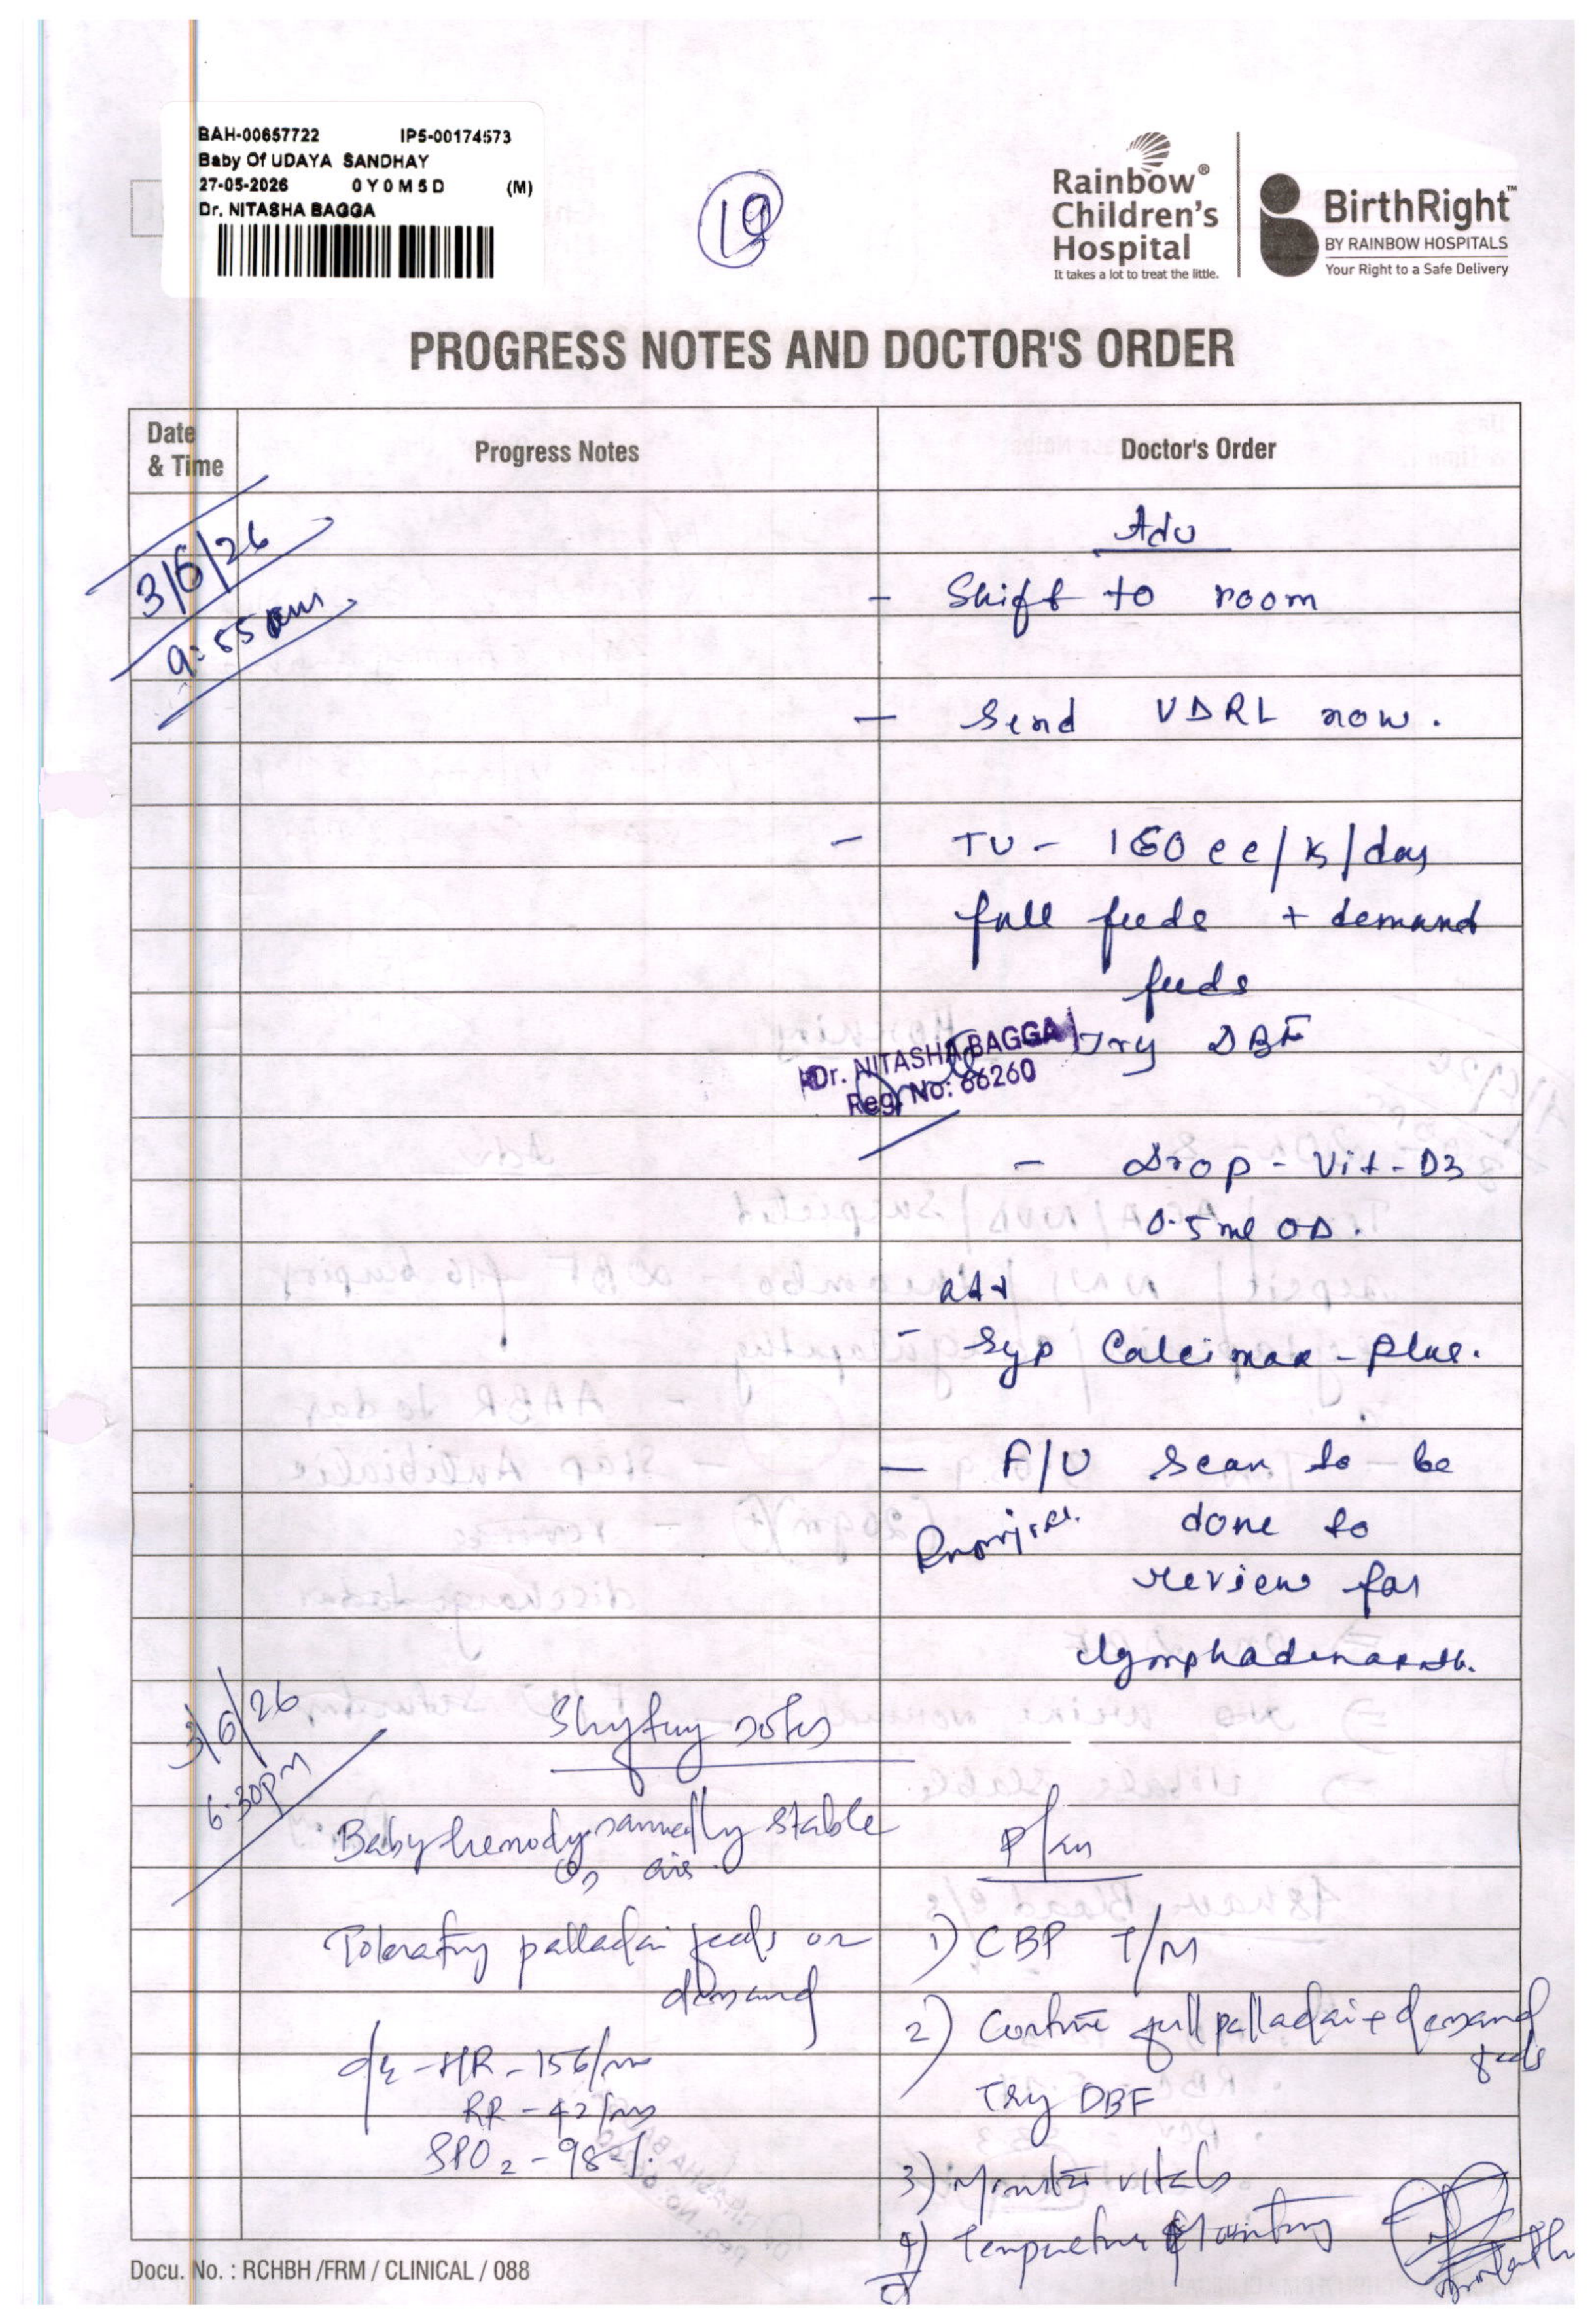 BAH-00657722 IP5-00174573
Baby Of UDAYA SANDHAY
27-05-2026 0Y0M5D (M)
Dr. NITASHA BAGGA
19
Rainbow®
Children's
Hospital
It takes a lot to treat the little.
BirthRight™
BY RAINBOW HOSPITALS
Your Right to a Safe Delivery
PROGRESS NOTES AND DOCTOR'S ORDER
Date & Time
Progress Notes
Doctor's Order
3/6/26
9:55am
Adv
- Shift to room
- Send VDRL now.
- TV - 160 cc/k/day
full feeds + demand
feeds
Try DBF
Dr. NITASHA BAGGA
Reg. No: 66260
- Drop - Vit - D3
0.5 ml OD.
adv
- Syp Calcimax - Plus.
- F/U scan to be
done to
review for
3/6/26
6.30pm
Shifting notes
Baby hemodynamically stable
on air.
Tolerating palladai feeds on
demand
o/e - HR - 156/m
RR - 42/m
SPO2 - 98%.
Plan
1) CBP T/M
2) Continue full palladai + demand
feeds
Try DBF
3) Monitor vitals
4) Temperature Monitoring
Docu. No. : RCHBH /FRM / CLINICAL / 088